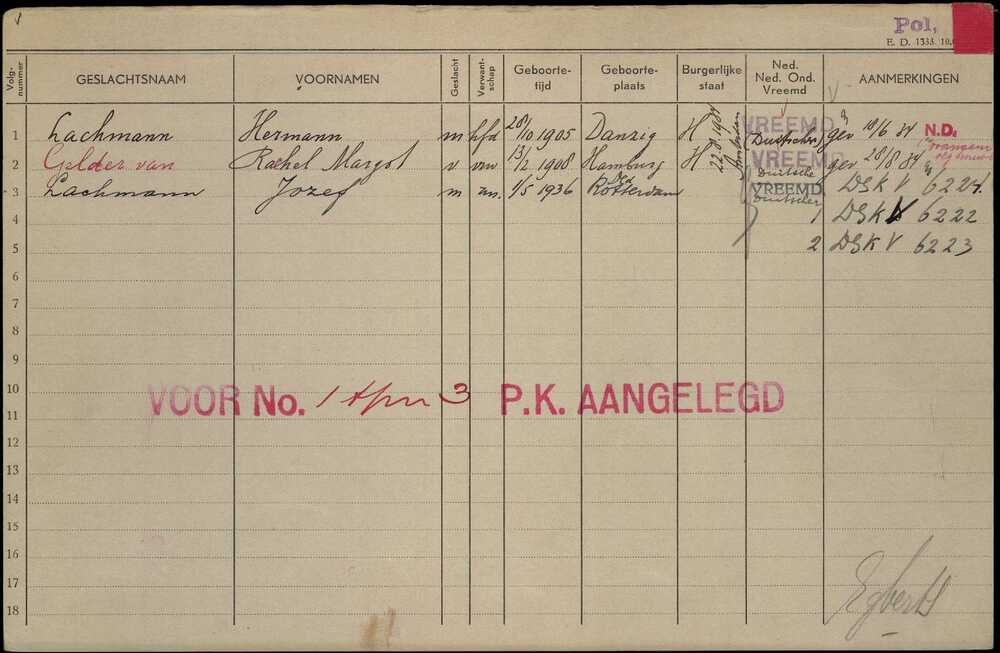 Pol,
E. D. 1333
Volg-nummer GESLACHTSNAAM VOORNAMEN Geslacht Verwant-schap Geboorte-tijd Geboorte-plaats Burgerlijke staat Ned. Ned. Ond. Vreemd AANMERKINGEN
1 Lachmann Hermann m hfd 28/10 1905 Danzig H 22/8 1934 VREEMD Duitscher gev 19/6 34 N.D.
2 Gelder van Rachel Margot v vrw 13/2 1908 Hamburg H VREEMD Duitsche gev 28/8 34
3 Lachmann Jozef m zn. 1/5 1936 Rotterdam VREEMD Duitscher DSK V 6224
4 1 DSK V 6222
5 2 DSK V 6223
6
7
8
9
10 VOOR No. 1 t/m 3 P.K. AANGELEGD
11
12
13
14
15
16
17 Egberts
18